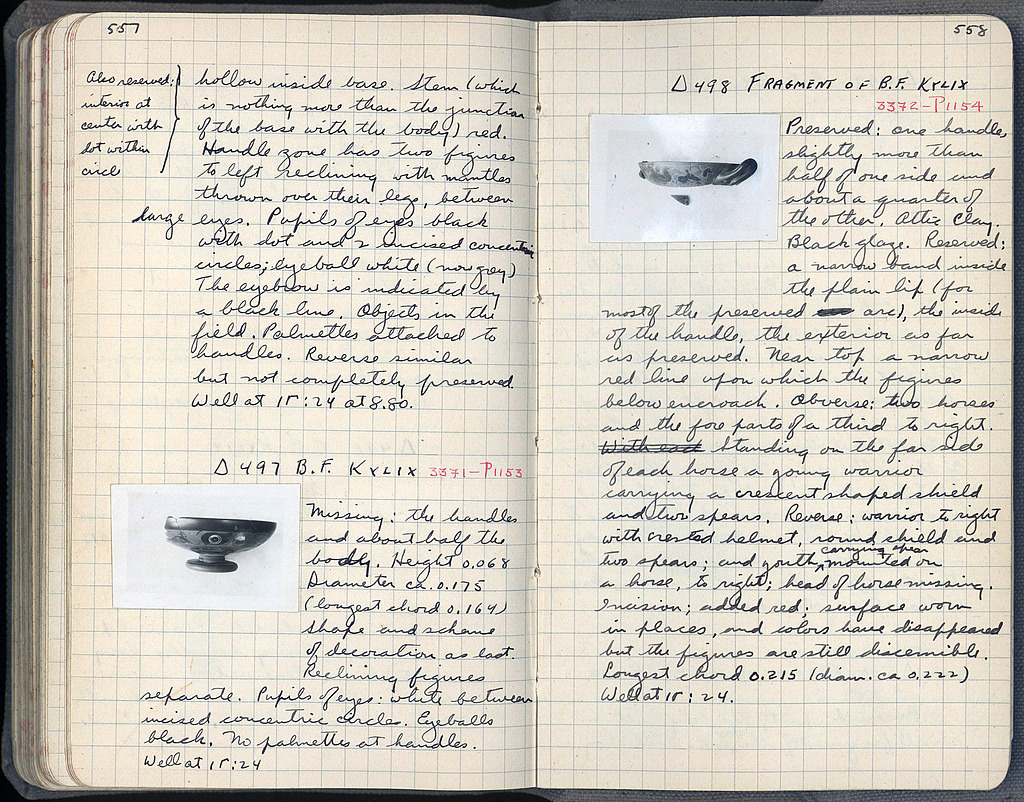 557
Also reserved:
interior at
center with
dot within
circle
hollow inside base. Stem (which
is nothing more than the junction
of the base with the body) red.
Handle zone has two figures
to left reclining with mantles
thrown over their legs, between
large eyes. Pupils of eyes black
with dot and 2 incised concentric
circles; eyeball white (now grey)
The eyebrow is indicated by
a black line. Objects in the
field. Palmettes attached to
handles. Reverse similar
but not completely preserved.
Well at ΙΓ:24 at 8.80.
Δ 497 B.F. KYLIX 3371-P1153
Missing: the handles
and about half the
body. Height 0.068
Diameter ca. 0.175
(longest chord 0.164)
Shape and scheme
of decoration as last.
Reclining figures
separate. Pupils of eyes: white between
incised concentric circles. Eyeballs
black. No palmettes at handles.
Well at ΙΓ:24
558
Δ 498 FRAGMENT OF B.F. KYLIX
3372-P1154
Preserved: one handle,
slightly more than
half of one side and
about a quarter of
the other. Attic clay.
Black glaze. Reserved:
a narrow band inside
the plain lip (for
most of the preserved arc), the inside
of the handle, the exterior as far
as preserved. Near top a narrow
red line upon which the figures
below encroach. Obverse: two horses
and the fore parts of a third to right.
With each Standing on the far side
of each horse a young warrior
carrying a crescent shaped shield
and two spears. Reverse: warrior to right
with crested helmet, round shield and
two spears; and youth, carrying spear mounted on
a horse, to right; head of horse missing.
Incision; added red; surface worn
in places, and colors have disappeared
but the figures are still discernible.
Longest chord 0.215 (diam. ca 0.222)
Well at ΙΓ:24.